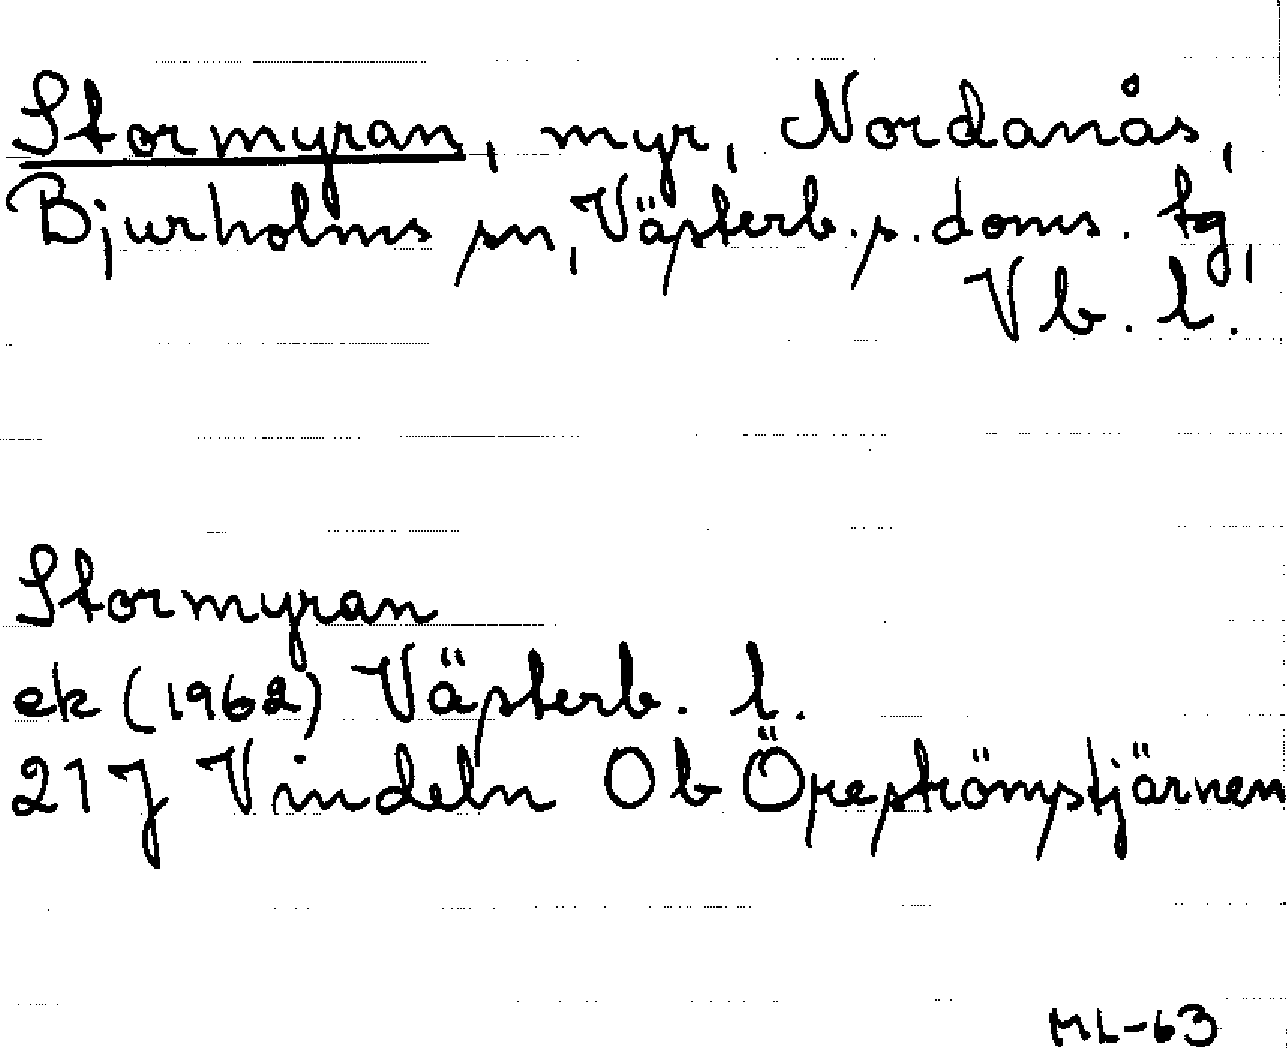 Stormyran, myr, Nordanås,
Bjurholms sn, Västerb. s. doms. tg,
Vb. l.
Stormyran
ek (1962) Västerb. l.
21 J Vindeln Ob Öreströmstjärnen
ML-63